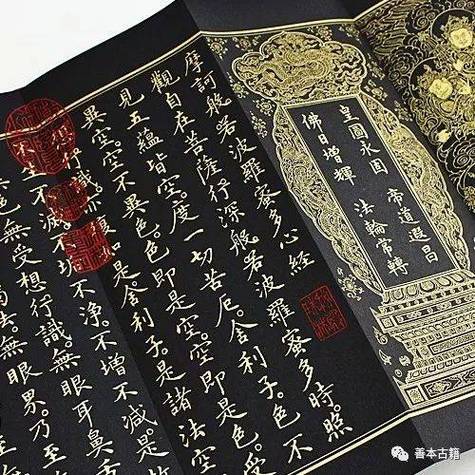 皇圖永固 帝道遐昌
佛日增輝 法輪常轉
摩訶般若波羅蜜多心經
觀自在菩薩行深般若波羅蜜多時。照
見五蘊皆空。度一切苦厄。舍利子。色不
異空。空不異色。色即是空。空即是色。
想行識。亦復如是。舍利子。是諸法空
不生不滅。不垢不淨。不增不減。是
色。無受想行識。無眼耳鼻舌
法。無眼界。乃至
善本古籍